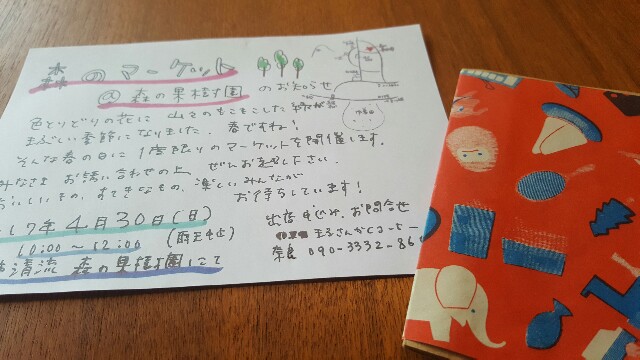 森のマーケット
@森の果樹園 のお知らせ
色とりどりの花に 山々のもこもこした
まぶしい季節になりました。春ですね！
そんな春の日に 1度限りのマーケットを開催します。
みなさま お誘い合わせの上、ぜひお越し下さい。
おいしいもの、すてきなもの、楽しいみんなが
お待ちしています！
17年4月30日(日)
10:00~12:00 (雨天中止)
清流 森の果樹園にて
出店申し込み、お問合せ
090-3332-86